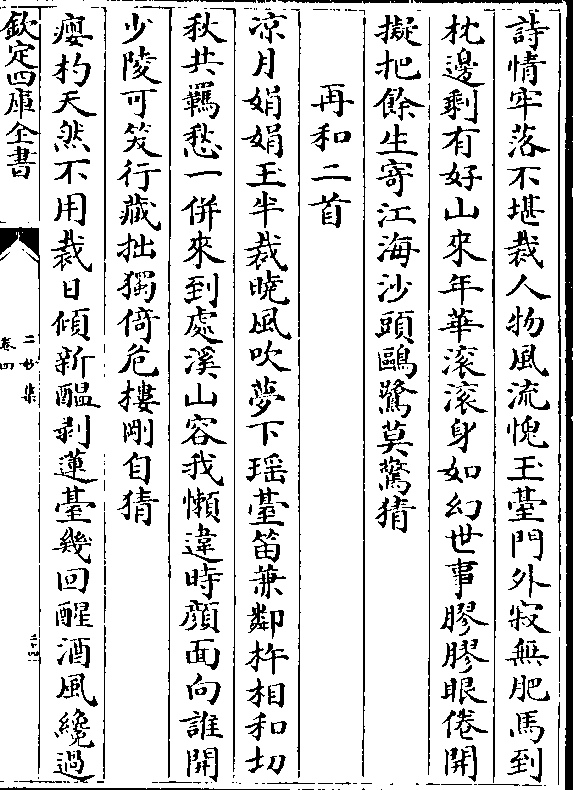 詩情牢落不堪裁人物風流愧玉臺門外寂無肥馬到
枕邊剩有好山來年華滚滚身如幻世事膠膠眼倦開
擬把餘生寄江海沙頭鷗鷺莫驚猜
再和二首
凉月娟娟玉半裁曉風吹夢下瑶臺笛兼鄰杵相和切
秋共羈愁一併來到處溪山容我懶違時顔面向誰開
少陵可笑行藏拙獨倚危樓剛自猜
癭杓天然不用裁日傾新醖剥蓮臺幾回醒酒風纔過
欽定四庫全書
二妙集
卷四